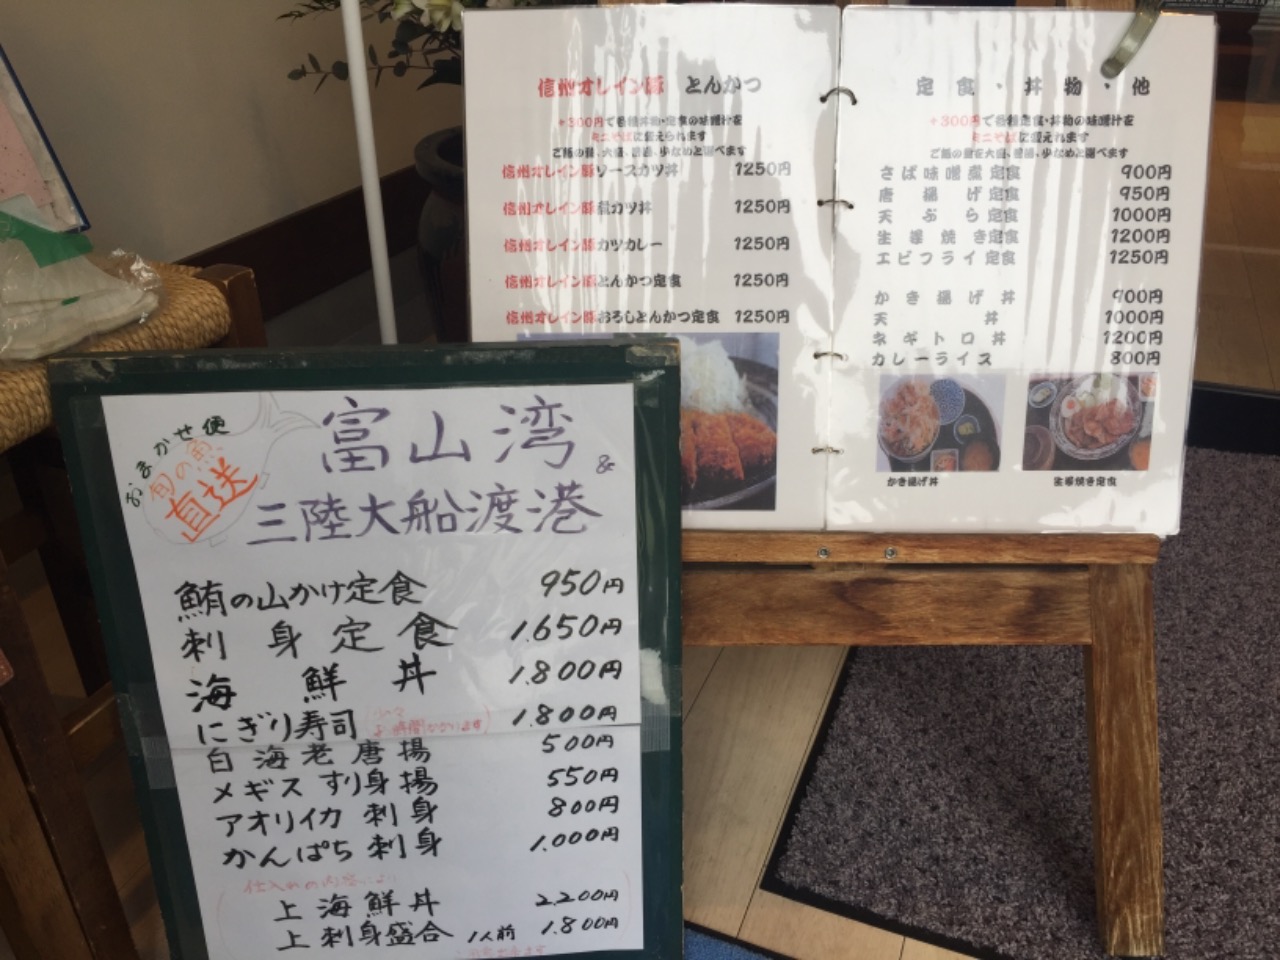 信州オレイン豚 とんかつ
+300円で各種丼物・定食の味噌汁を
ミニそばに変えられます
ご飯の量、大盛、普通、少なめと選べます
信州オレイン豚ソースカツ丼 1250円
信州オレイン豚煮カツ丼 1250円
信州オレイン豚カツカレー 1250円
信州オレイン豚とんかつ定食 1250円
信州オレイン豚おろしとんかつ定食 1250円
定食・丼物・他
+300円で各種定食・丼物の味噌汁を
ミニそばに変えれます
ご飯の量を大盛、普通、少なめと選べます
さば味噌煮定食 900円
唐揚げ定食 950円
天ぷら定食 1000円
生姜焼き定食 1200円
エビフライ定食 1250円
かき揚げ丼 900円
天丼 1000円
ネギトロ丼 1200円
カレーライス 800円
かき揚げ丼
生姜焼き定食
おまかせ便
旬の魚
直送
富山湾
&
三陸大船渡港
鮪の山かけ定食 950円
刺身定食 1.650円
海鮮丼 1.800円
にぎり寿司 (少々お時間かかります) 1.800円
白海老唐揚 500円
メギスすり身揚 550円
アオリイカ刺身 800円
かんぱち刺身 1.000円
仕入れの内容により
上海鮮丼 2.200円
上刺身盛合 1人前 1.800円